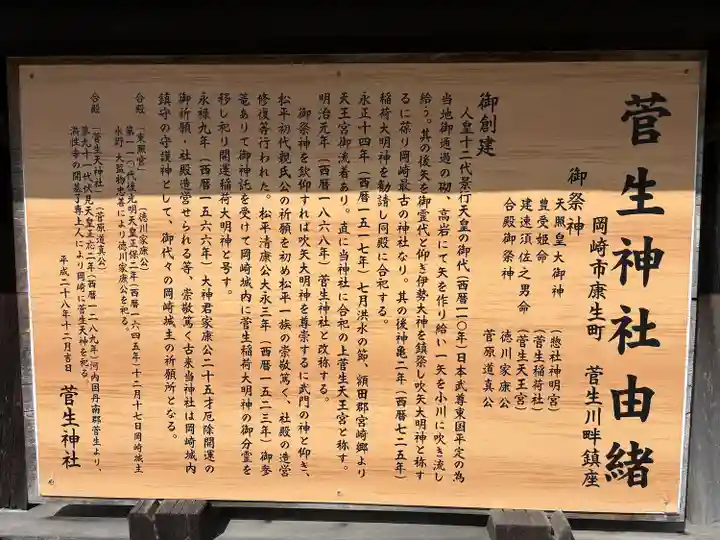 菅生神社由緒
岡崎市康生町　菅生川畔鎮座
御祭神
天照皇大御神　（惣社神明宮）
豊受姫命　（菅生稲荷社）
建速須佐之男命　（菅生天王宮）
合殿御祭神　徳川家康公
菅原道真公
御創建
人皇十二代景行天皇の御代（西暦一一〇年）日本武尊東国平定の為
当地御通過の砌、高岩にて矢を作り給い一矢を小川に吹き流し
給う。其の後矢を御霊代と仰ぎ伊勢大神を鎮祭し吹矢大明神と称す
るに葆り岡崎最古の神社なり。其の後神亀二年（西暦七二五年）
稲荷大明神を勧請し同殿に合祀する。
永正十四年（西暦一五一七年）七月洪水の節、額田郡宮崎郷より
天王宮御流着あり。直に当神社に合祀の上菅生天王宮と称す。
明治元年（西暦一八六八年）菅生神社と改称する。
御祭神を欽仰すれば吹矢大明神を尊崇するに武門の神と仰ぎ、
松平初代親氏公の祈願を初め松平一族の崇敬篤く、社殿の造営
修復等行われた。松平清康公大永三年（西暦一五二三年）御参
篭ありて御神託を受けて岡崎城内に菅生稲荷大明神の御分霊を
移し祀り開運稲荷大明神と号す。
永禄九年（西暦一五六六年）、大神君家康公二十五才厄除開運の
御祈願・社殿造営せられる等、崇敬篤く古来当神社は岡崎城内
鎮守の守護神として、御代々の岡崎城主の祈願所となる。
合殿　「東照宮」　（徳川家康公）
第一一〇代後光明天皇正保二年（西暦一六四五年）十二月十七日岡崎城主
水野　大監物忠善により徳川家康公を祀る。
合殿　「菅生天神社」　（菅原道真公）
第九十一代伏見天皇正応二年（西暦一二八九年）河内国丹南郡菅生より、
満性寺の開基了専上人により岡崎に菅生天神を祀る。
平成二十八年十二月吉日　菅生神社